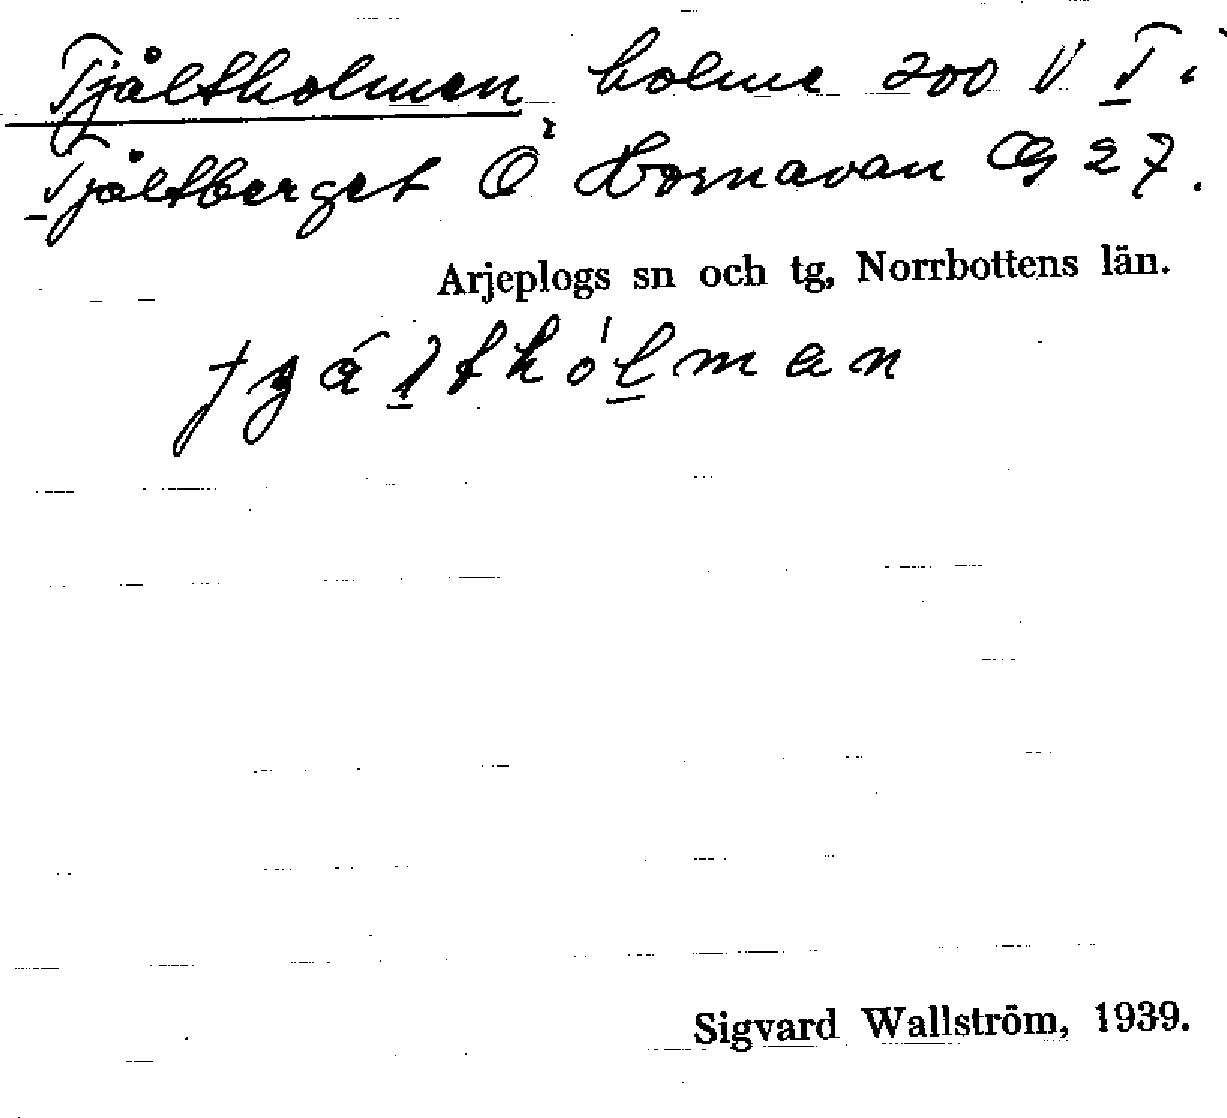 Tjåltholmen, holme 200 V T i
Tjåltberget Ö Hornavan Cg 27.
Arjeplogs sn och tg, Norrbottens län.
Sigvard Wallström, 1939.